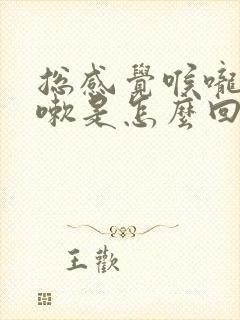 總感覺喉嚨
嗽是怎麼回
王歡